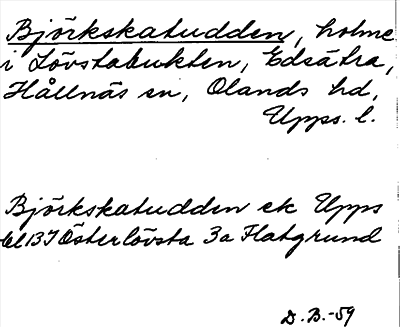 Björkskatudden, holme
i Lövstabukten, Edsätra,
Hållnäs sn, Olands hd,
Upps. l.
Björkskatudden ek Upps
bl 13 I Österlövsta 3a Flatgrund
D. B.-59